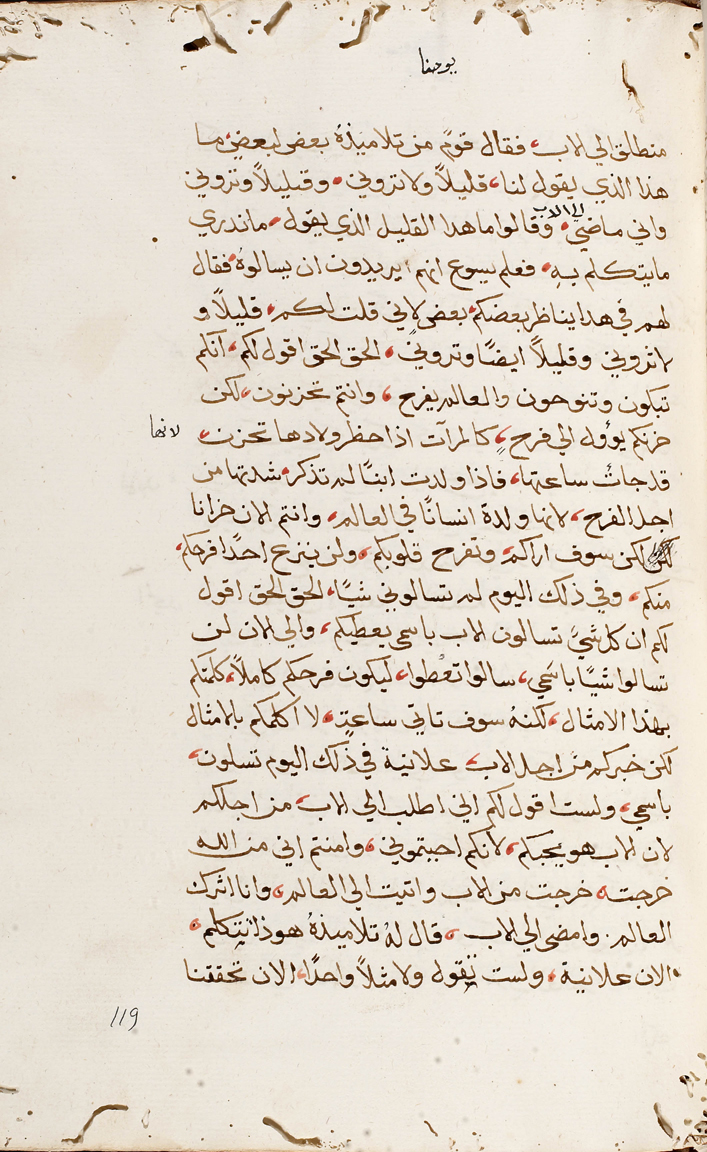 يوحنا
منطلق الي الاب، فقال قومً من تلاميذهُ بعض لبعضٍ ما
هذا الذي يقول لنا، قليلاً ولا تروني، وقليلاً وتروني
واني ماضي، الي الاب وقالوا ما هدا القليل الذي يقول، ما ندري
ما يتكلم بهِ، فعلم يسوع انهم يريدون ان يسالوهُ، فقال
لهم في هدا يناظر بعضكم بعض لاني قلت لكم، قليلاً و
لا تروني وقليلاً ايضًا وتروني، الحق الحق اقول لكم، انكم
تبكون وتنوحون والعالم يفرح، وانتم تحزنون، لكن
حزنكم يوؤل الي فرح، كالمرآت اذا حظر ولادها تحزن، لانها
قد جاتْ ساعتها، فاذا ولدت ابنًا لم تذكر شدتها من
اجل الفرح، لانها ولدة انسانًا في العالم، وانتم الان حزانا
لكن سوف اراكم، وتفرح قلوبكم، ولن ينزع احدًا فرحكم،
منكم، وفي ذلك اليوم لم تسالوني شيًا، الحق الحق اقول
لكم ان كل شيً تسالون الاب باسمي يعطيكم، والي الان لن
تسالوا شيًا باسَمي، سالوا تعُطوا، ليكون فرحكم كاملاً، كلمتكم
بهذا الامثال، لكنهُ سوف تاتي ساعتٍ، لا اكلمكم بالامثال
لكن خبركم من اجل الاب، علانية في ذلك اليوم تسلون،
باسمي، ولست اقول لكم اني اطلب الي الاب، من اجلكم
لان الاب هو يحبكم، لانكم احببتموني، وامنتم اني من الله
خرجت، خرجت من الاب واتيت الي العالم، وانا اترك
العالم. وامضي الي الاب، قال لهُ تلاميذهُ هوذا تتكلم،
الان علانية، ولست تقول ولا مثلاً واحدًا، الان تحققنا
119